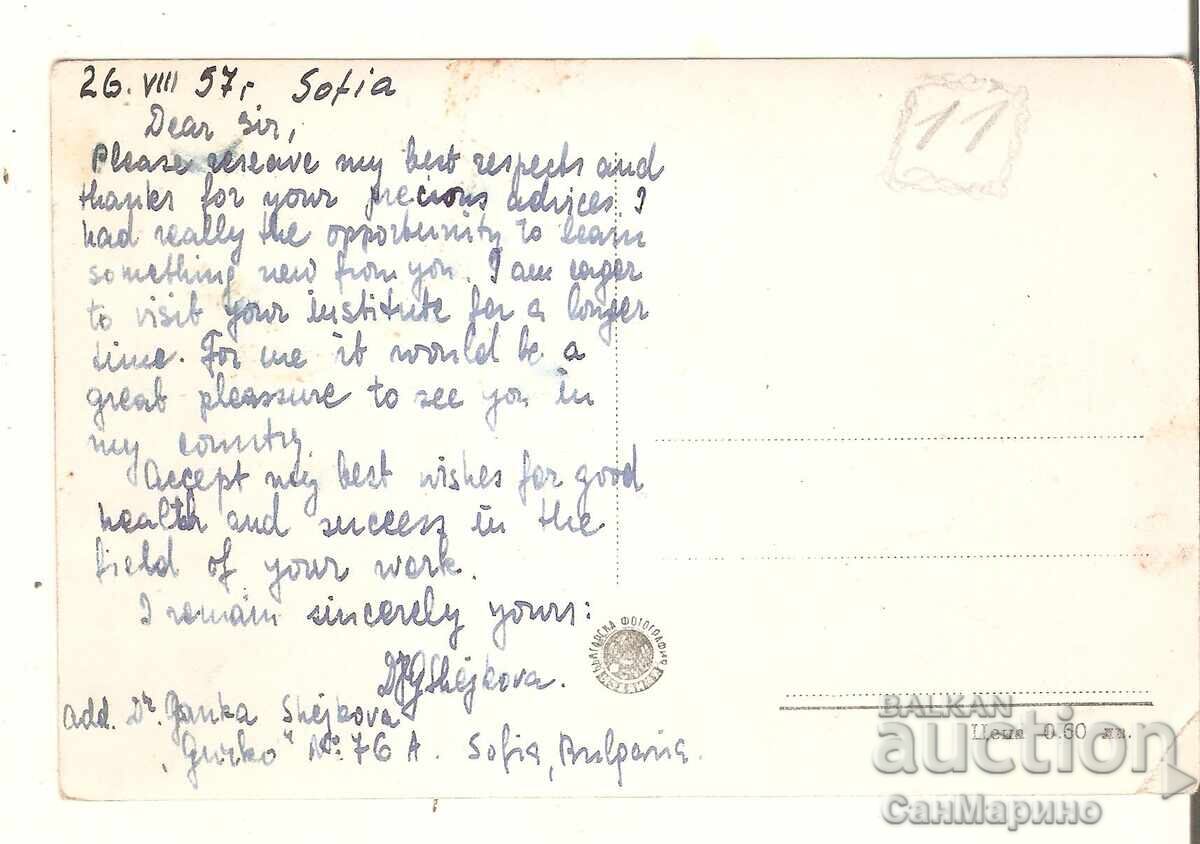 26. VIII 57 г. Sofia
Dear Sir,
Please reseave my best respects and
thanks for your precious advices. I
had really the opportunity to learn
something new from you. I am eager
to visit your institute for a longer
time. For me it would be a
great pleassure to see you in
my country.
Accept my best wishes for good
health and success in the
field of your work.
I remain sincerely yours:
Shejkova.
add. Dr. Ganka Shejkova
„Gurko" No: 76 A. Sofia, Bulgaria.
11
БЪЛГАРСКА ФОТОГРАФИЯ
Цена 0.60 лв.
BALKAN
auction
СанМарино